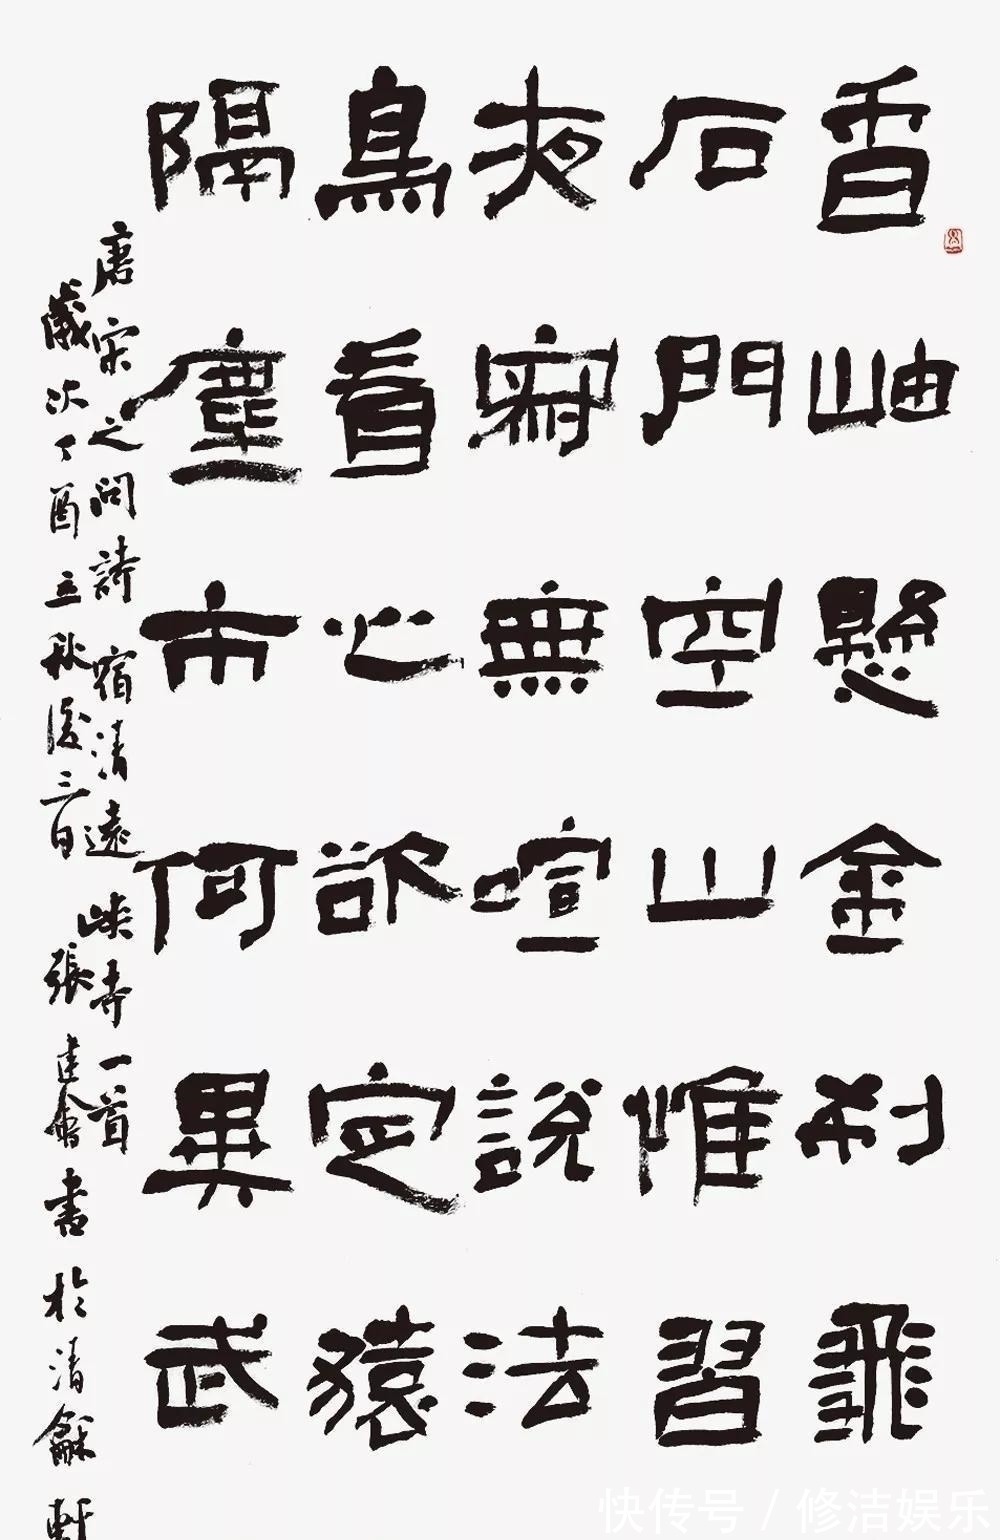 香岫懸金刹飛
石門空山惟習
夜寂無喧說法
鳥看心欲定猿
隔塵市何異武
唐宋之問詩宿清遠峽寺一首
歲次丁酉立秋後三日張建會書於清龢軒
快传号/修洁娱乐